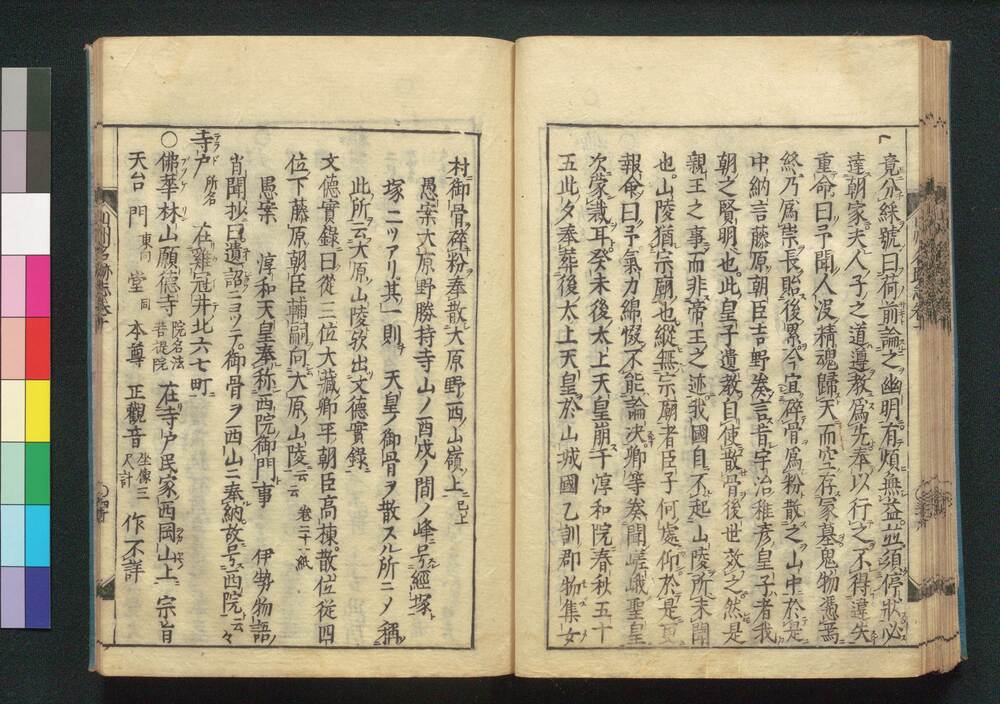 竟分綵號曰荷前論之幽明有煩無益並須停狀必
達朝家夫人子之道遵教爲先奉以行之不得違失
重命曰予聞人没精魂歸天而空存冢墓鬼物憑焉
終乃爲祟長貽後累今宜碎骨爲粉散之山中於是
中納言藤原朝臣吉野奏言昔宇治稚彦皇子者我
朝之賢明也此皇子遺教自使散骨後世效之然是
親王之事而非帝王之迹我國自不起山陵所未聞
也山陵猶宗廟也縱無宗廟者臣子何處仰於是更
報命曰予氣力綿惙不能論决卿等奏聞嵯峨聖皇
次蒙裁耳癸未後太上天皇崩于淳和院春秋五十
五此夕奉葬後太上天皇於山城國乙訓郡物集女
村御骨碎粉奉散大原野西ノ山嶺上 已上
愚案大原野勝持寺山ノ酉戌ノ間ノ峰号經塚
塚二ツアリ其一則 天皇ノ御骨ヲ散スル所ニノ稱
此所云大原山陵欤出文德實錄
文德實錄曰從三位大藏卿平朝臣高棟散位從四
位下藤原朝臣輔嗣向大原山陵云云 卷二十八紙
愚案 淳和天皇奉称西院御門事 伊勢物語
肖聞抄曰遺詔ニヨツテ御骨ヲ西山ニ奉納故号西院云々
寺戸 所名 在雞冠井北六七町
○佛華林山願德寺 院名法菩提院 在寺戸民家西岡山上宗旨
天台 門 東向 堂 同 本尊 正觀音 坐像三尺計 作不詳